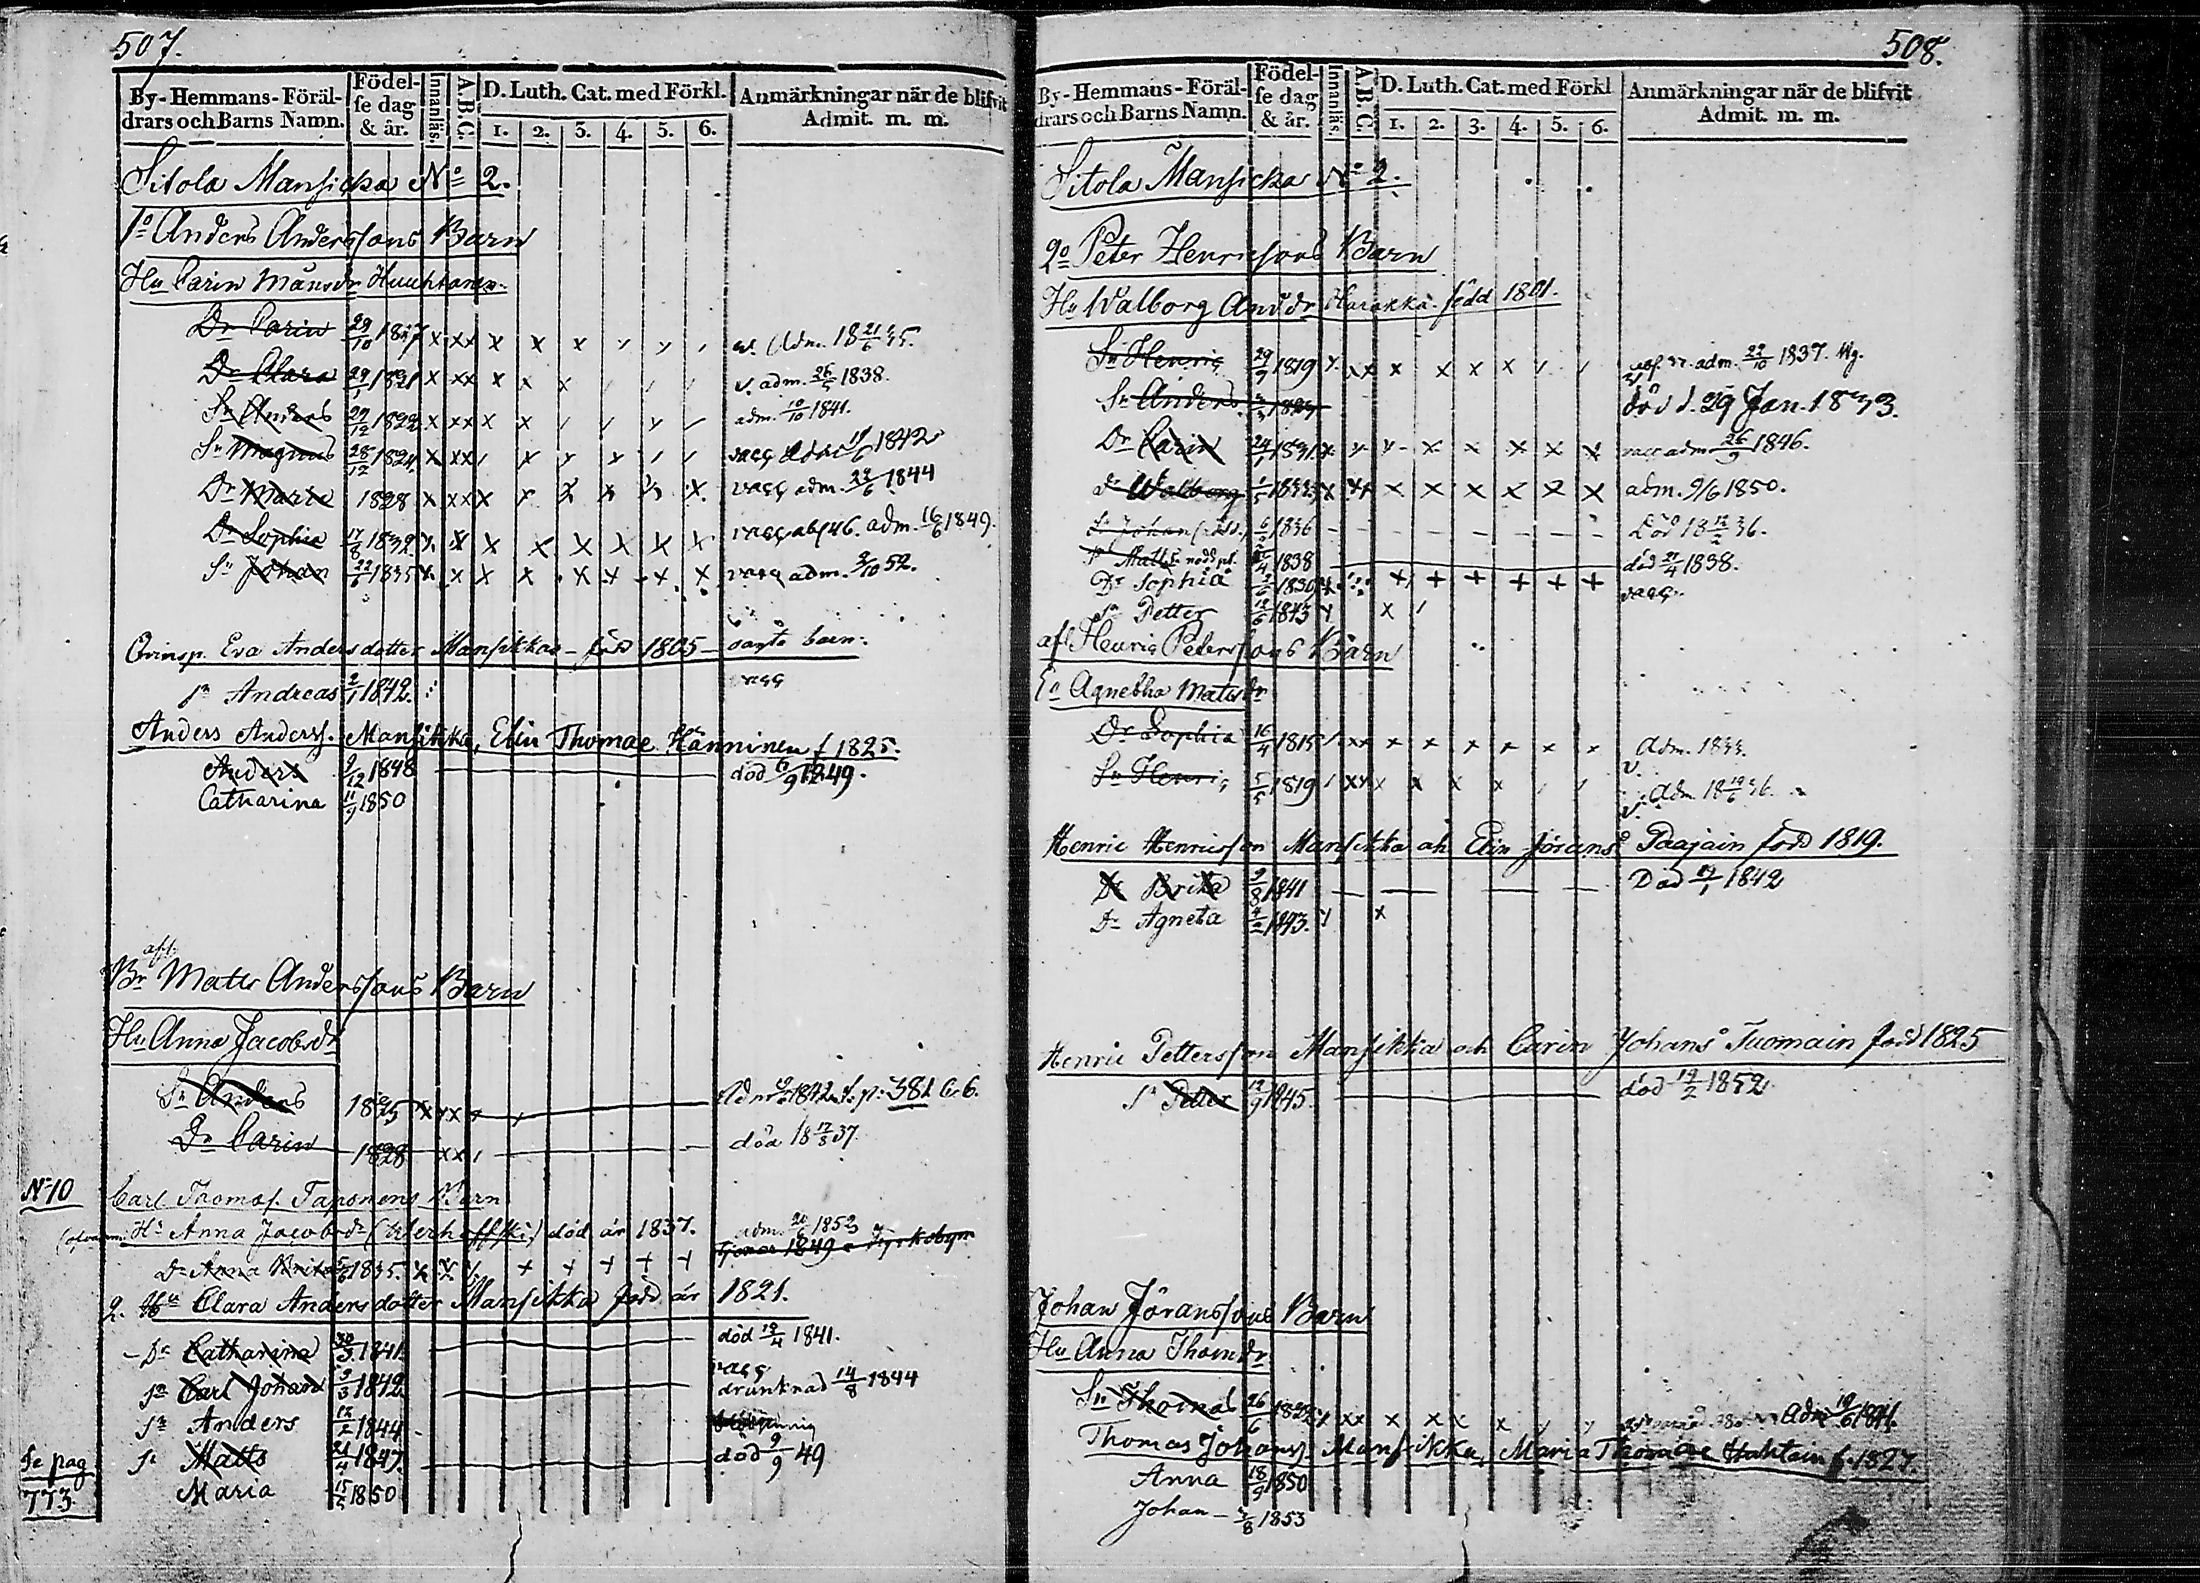 507.
By-Hemmans-Föräl-
drars och Barns Namn.
Födel-
se dag
& år.
Innanläs.
A.B.C.
D. Luth. Cat. med Förkl.
1. 2. 3. 4. 5. 6.
Anmärkningar när de blifvit
Admit. m. m.
Sitola Mansicka No 2.
1o Anders Anderssons Barn
Hu Carin Månsdr Huuhtanen
Dr Carin 29/10 1817 x xx x x x v. Adm. 18 21/6 35.
Dr Clara 29/1 1821 x xx x x x v. adm. 26/5 1838.
Sn Anders 27/12 1822 x xx x x adm. 10/10 1841.
Sn Magnus 28/12 1824 x xx vacc adm 1842
Dr Maria 1828 x xx x x vacc adm. 22/6 1844
Dr Sophia 17/8 1832 x x x x x x x x vacc abs 46. adm. 16/6 1849.
Sn Johan 22/6 1835 x x x x x x x x vacc adm. 2/10 52.
Qvinsp. Eva Andersdotter Mansikka - född 1805 - oägta barn.
sn Andreas 2/1 1842. vacc
Anders Anderss. Mansikka, Elin Thomae Hänninen f 1825.
Anders 9/12 1848 död 6/9 1849.
Catharina 11/9 1850
afl.
Br Matts Anderssons Barn
Hu Anna Jacobsdr
Sn Anders 1825 x xx Adm 1842 f. p: 381 G. 6.
Dr Carin 1828 xx död 18 17/3 37.
No 10
Carl Thomas. Taponens Barn
Hu Anna Jacobsdr död år 1837.
adm. 20/6 1852
tjenar 1849
Dr Anna Brita 1835. + + + + +
2. Hu Clara Andersdotter Mansikka född år 1821.
Dr Catharina 30/3 1841 död 19/4 1841.
vacc
sn Carl Johan 9/3 1842 drunknad 14/8 1844
sn Anders 12/2 1844
sn Matts 21/4 1847. död 9/9 49
Maria 15/5 1850
Se pag
773
508.
By-Hemmans-Föräl-
drars och Barns Namn.
Födel-
se dag
& år.
Innanläs.
A.B.C.
D. Luth. Cat. med Förkl
1. 2. 3. 4. 5. 6.
Anmärkningar när de blifvit
Admit. m. m.
Sitola Mansicka No 2.
2o Peter Henricsons Barn
Hu Walborg Andsdr Harakka född 1801.
Sn Henric 29/9 1819 x xx x x x x adm. 22/10 1837.
Sn Anders död d. 29 Jan. 1833.
Dr Carin 24/1 1831 x x x x x x vacc adm 26/9 1846.
dr Walborg 1/5 1833 x x x x x x x adm. 9/6 1850.
Sn Johan 6/2 1836 Död 18 12/2 36.
sn Matts nöddpt. 1838 död 21/4 1838.
Dr Sophia x + + + + + vacc
sn Petter 12/6 1843 x
afl Henric Peterssons Barn
Ea Agnetha Matsdr
Dr Sophia 16/4 1815 xx x x x x x x Adm. 1833.
Sn Henric 5/5 1819 xx x x x x v. Adm 18 19/6 36.
Henric Henricsson Mansikka och Elin Jöransdr Paajain född 1819.
Dr Brita 9/8 1841 Död 19/1 1842
Dr Agneta 4/2 1843. x
Henric Pettersson Mansikka och Carin Johansdr Tuomain född 1825
sn Petter 12/9 1845. död 14/2 1852
Johan Jöranssons Barn
Hu Anna Thomsdr
Sn Thomas 26/6 1822 x xx x x x x Adm 19/6 1841.
Thomas Johanss. Mansikka, Maria Thomae Hahtain f. 1827.
Anna 18/9 1850
Johan - 3/8 1853